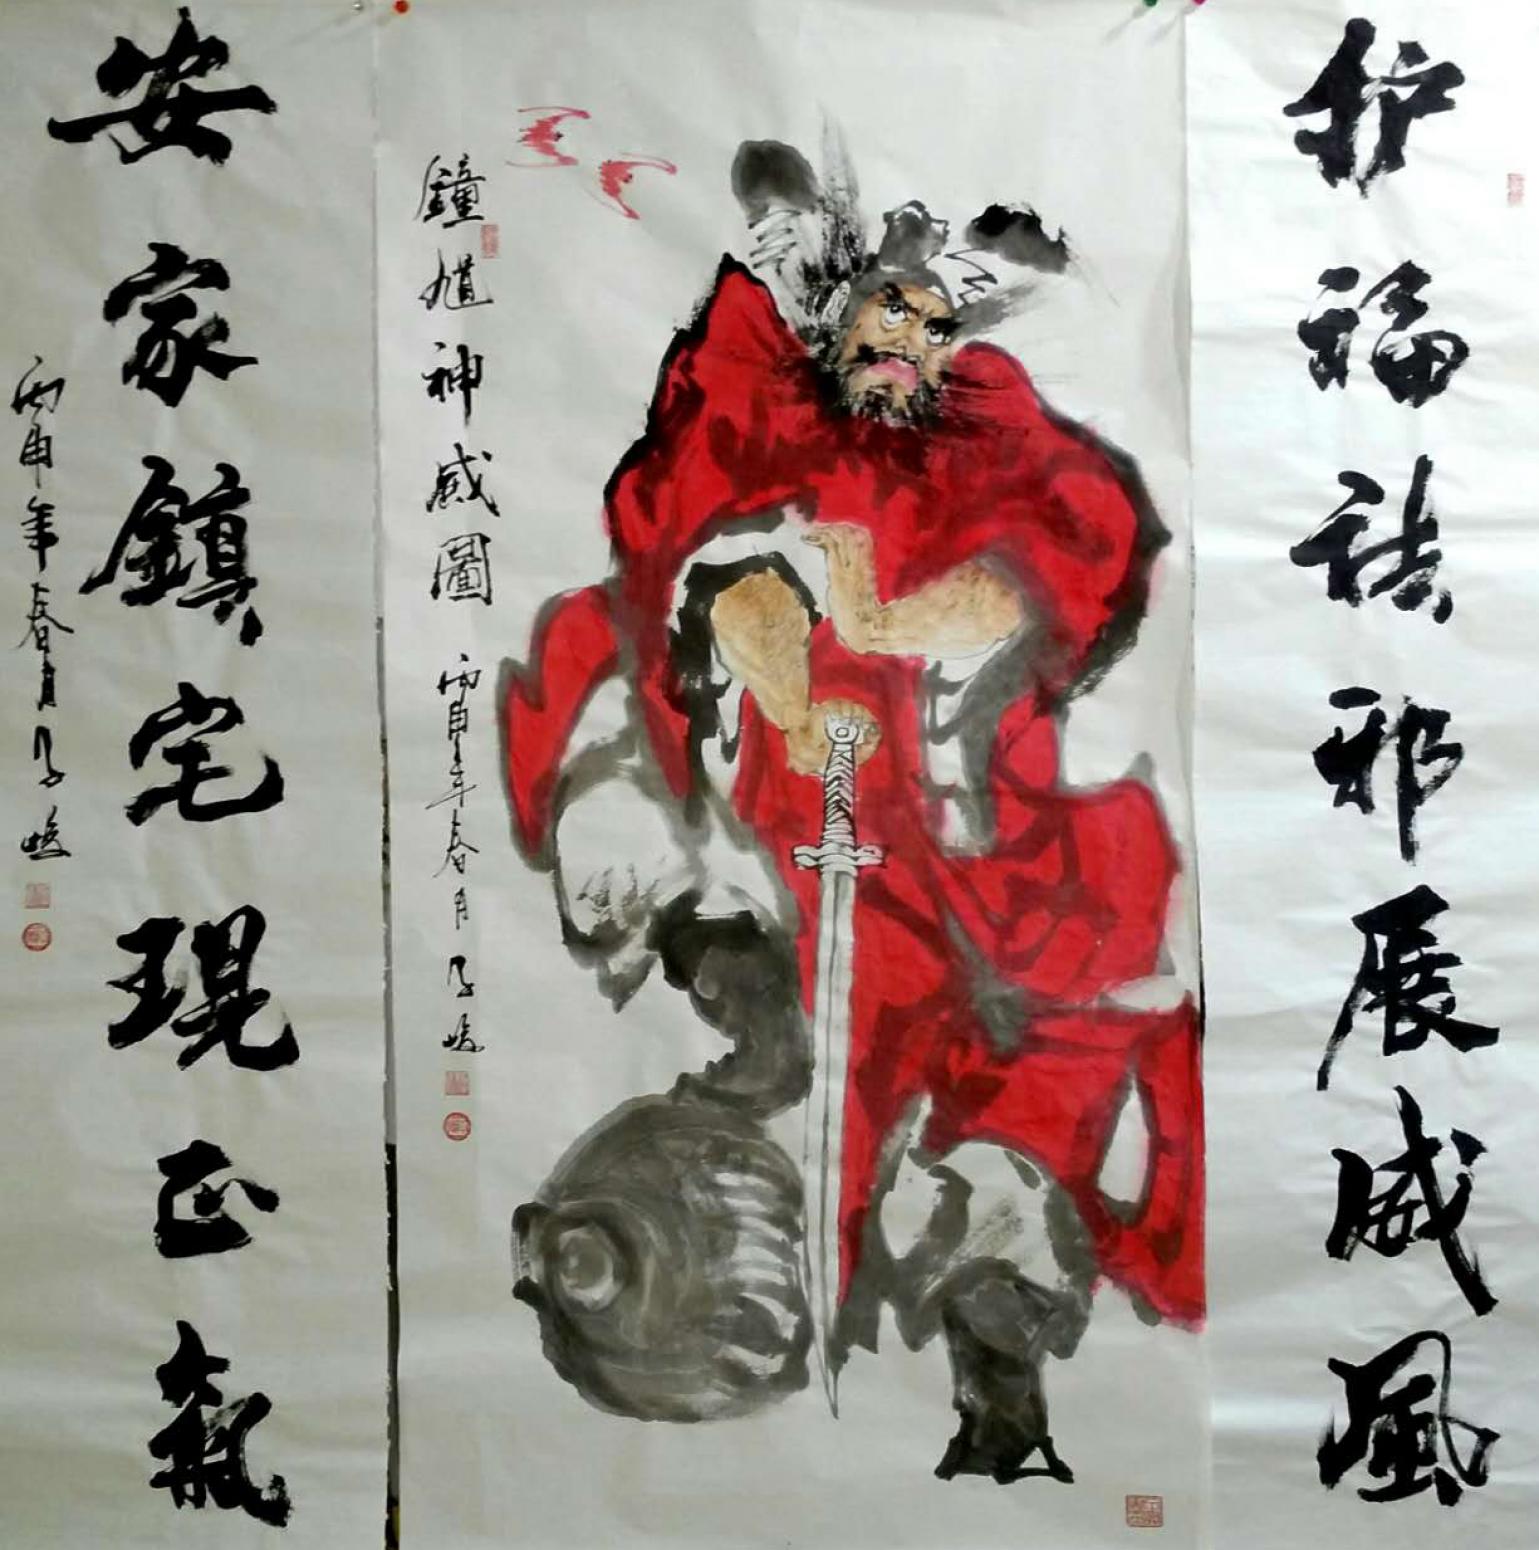 护福祛邪展威風
鐘馗神威圖
丙申年春月
安家鎮宅現正氣
丙申年春月